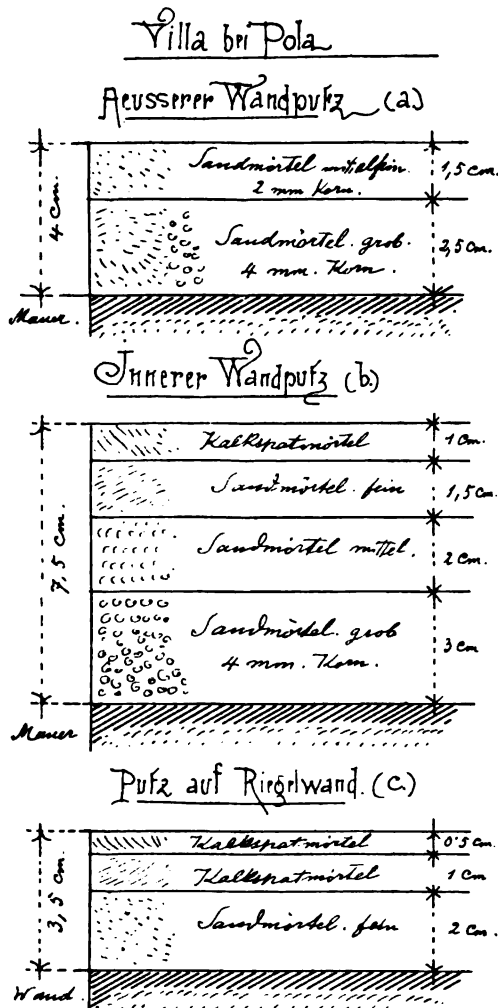 Villa bei Pola
Aeusserer Wandputz (a.)
4 cm.
Sandmörtel
2 mm Korn.
1,5 cm.
Sandmörtel. grob.
4 mm. Korn.
2,5 cm.
Mauer.
Innerer Wandputz (b.)
7,5 cm.
Kalkspatmörtel
1 cm.
Sandmörtel. fein
1,5 cm.
Sandmörtel mittel.
2 cm.
Sandmörtel. grob
4 mm. Korn.
3 cm
Mauer
Putz auf Riegelwand. (c.)
3,5 cm.
Kalkspatmörtel
0.5 cm
Kalkspatmörtel
1 cm
Sandmörtel. fein
2 cm.
Wand.